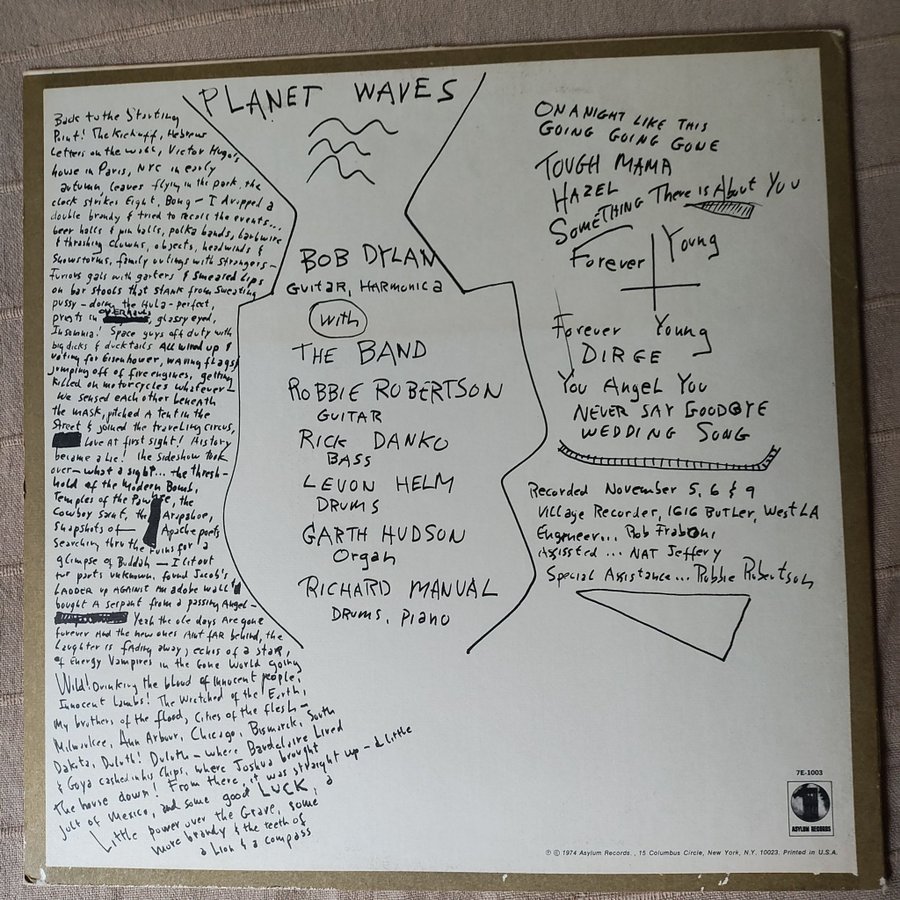 PLANET WAVES
Back to the Starting
Point! The Kickoff, Hebrew
Letters on the wall, Victor Hugo's
house in Paris, NYC in early
autumn, leaves flying in the park, the
clock strikes Eight, Bong — I dropped a
double brandy & tried to recall the events...
beer halls & pin balls, polka bands, barbwire
& thrashing clowns, objects, headwinds &
Snowstorms, family outings with strangers —
Furious gals with garters & smeared Lips
on bar stools that stank from sweating
pussy — doing the Hula — perfect,
priests in overhauls, glassy eyed,
Insomnia! Space guys off duty with
big dicks & ducktails All wired up &
voting for Eisenhower, waving flags &
jumping off of fire engines, getting
killed on motorcycles whatever —
We sensed each other beneath
the MASK, pitched A tent in the
Street & joined the traveling circus,
Love At first sight! History
became a Lie! the sideshow took
over — what a sight... the thresh-
hold of the Modern Bomb,
Temples of the Pawnee, the
Cowboy Saint, the Arapahoe,
Snapshots of — Apache poets
searching thru the ruins for a
glimpse of Buddah — I lit out
for parts unknown, found Jacob's
LADDER up AGAINST AN adobe wall &
bought A serpent from a passing Angel —
Yeah the ole days Are gone
forever And the new ones Aint fAR behind, the
Laughter is fAding away, echos of a staR,
of Energy Vampires in the Gone World going
Wild! Drinking the blood of innocent people,
Innocent Lambs! The Wretched of the Earth,
My brothers of the flood, Cities of the flesh —
Milwaukee, Ann Arbour, Chicago, Bismarck, South
Dakota, Duluth! Duluth — where Baudelaire Lived
& Goya cashed in his Chips, where Joshua brought
the house down! From there, it was straight up — a little
jolt of Mexico, and some good LUCK, a
Little power over the Grave, some
more brandy & the teeth of
a Lion & a compass
BOB DYLAN
GUITAR, HARMONICA
with
THE BAND
ROBBIE ROBERTSON
GUITAR
RICK DANKO
BASS
LEVON HELM
DRUMS
GARTH HUDSON
Organ
RICHARD MANUAL
DRUMS, PIANO
ON A NIGHT LIKE THIS
GOING GOING GONE
TOUGH MAMA
HAZEL
SOMETHING There is About You
Forever Young
Forever Young
DIRGE
You Angel You
NEVER SAY GOODBYE
WEDDING SONG
Recorded November 5, 6 & 9
Village Recorder, 1616 BUTLER, West LA
Engineer... Rob Fraboni
Assissted... NAT Jeffery
Special Assistance... Robbie Robertson
7E-1003
ASYLUM RECORDS
℗ © 1974 Asylum Records., 15 Columbus Circle, New York, N.Y. 10023. Printed in U.S.A.